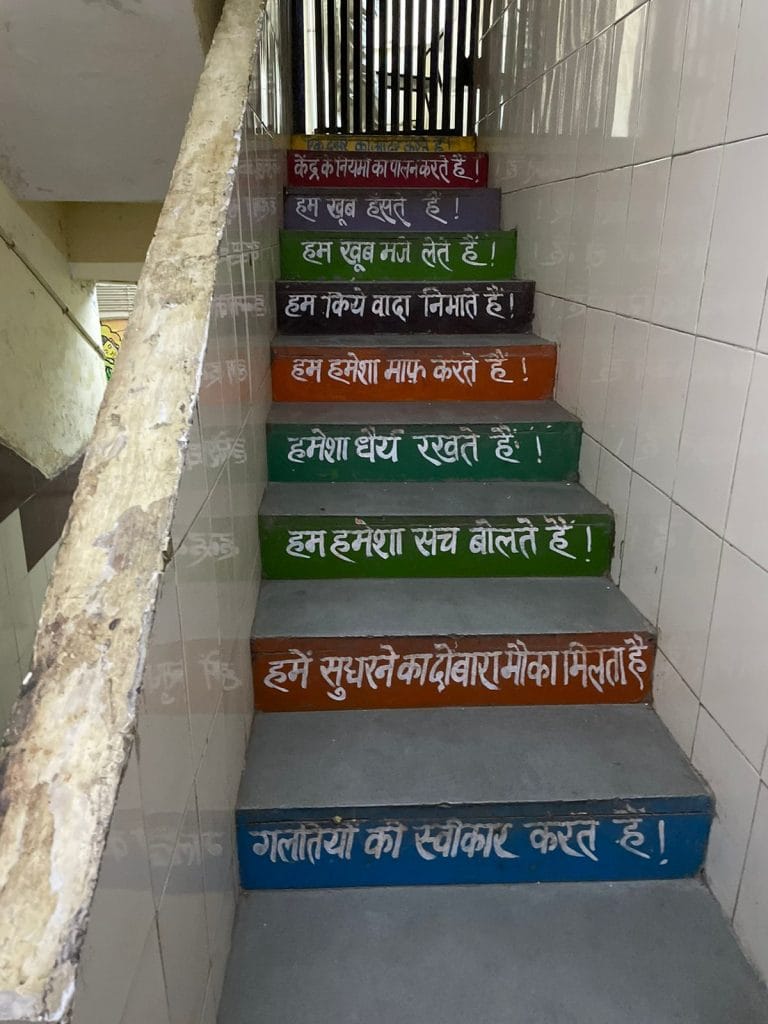 केंद्र के नियमों का पालन करते है !
हम खूब हंसते हैं !
हम खूब मजे लेते हैं !
हम किये वादा निभाते हैं !
हम हमेशा माफ़ करते हैं !
हमेशा धैर्य रखते हैं !
हम हमेशा सच बोलते हैं !
हमें सुधरने का दोबारा मौका मिलता है
गलतियों को स्वीकार करते हैं !